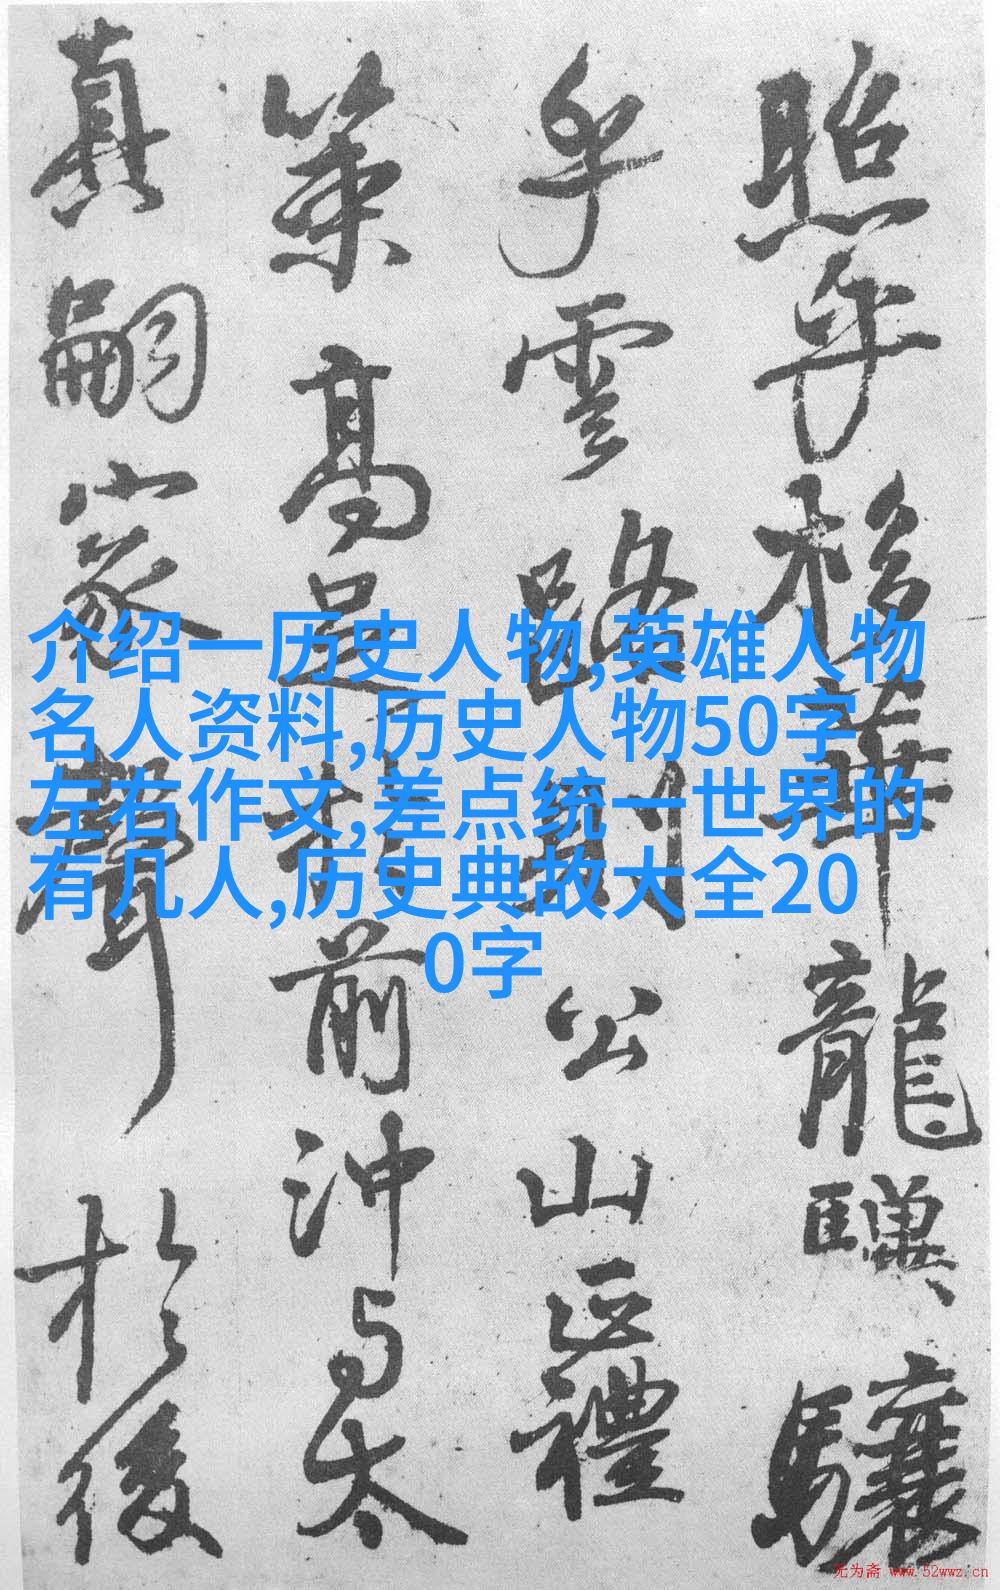 照乎栘華龍驥驤
乎雲路則公山正禮
策高足於前沖与太
真嗣家聲於後
介绍一历史人物,英雄人物
名人资料,历史人物50字
左右作文,差点统一世界的
有几人,历史典故大全20
0字
无为斋 www.52wwz.cn